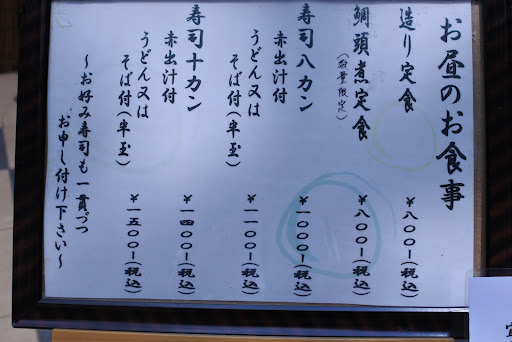 お昼のお食事
造り定食 ¥八〇〇ー(税込)
鯛頭煮定食 ¥八〇〇ー(税込)
(数量限定)
寿司八カン
赤出汁付 ¥一〇〇〇ー(税込)
うどん又は
そば付(半玉) ¥一一〇〇ー(税込)
寿司十カン
赤出汁付 ¥一四〇〇ー(税込)
うどん又は
そば付(半玉) ¥一五〇〇ー(税込)
〜お好み寿司も一貫づつ
お申し付け下さい〜